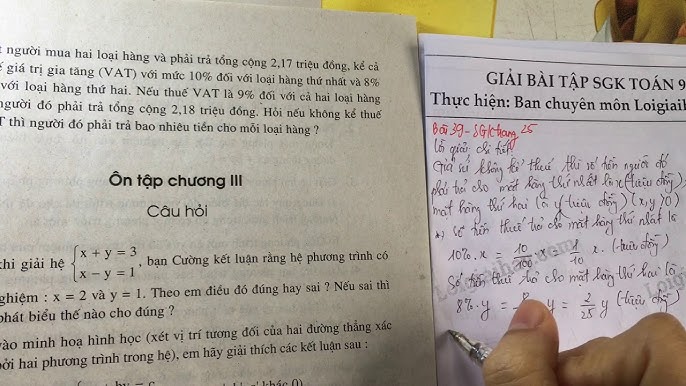 t người mua hai loại hàng và phải trả tổng cộng 2,17 triệu đồng, kể cả
ế giá trị gia tăng (VAT) với mức 10% đối với loại hàng thứ nhất và 8%
với loại hàng thứ hai. Nếu thuế VAT là 9% đối với cả hai loại hàng
người đó phải trả tổng cộng 2,18 triệu đồng. Hỏi nếu không kể thuế
T thì người đó phải trả bao nhiêu tiền cho mỗi loại hàng ?
Ôn tập chương III
Câu hỏi
khi giải hệ { x + y = 3
x − y = 1 , bạn Cường kết luận rằng hệ phương trình có
nghiệm : x = 2 và y = 1. Theo em điều đó đúng hay sai ? Nếu sai thì
phát biểu thế nào cho đúng ?
vào minh hoạ hình học (xét vị trí tương đối của hai đường thẳng xác
bởi hai phương trình trong hệ), em hãy giải thích các kết luận sau :
GIẢI BÀI TẬP SGK TOÁN 9
Thực hiện: Ban chuyên môn Loigiaih
Bài 39 - SGK trang 25
Lời giải chi tiết
Giả sử không kể thuế thì số tiền người đó
phải trả cho mặt hàng thứ nhất là x (triệu đồng)
mặt hàng thứ hai là y (triệu đồng) (x,y >0)
số tiền thuế trả cho mặt hàng thứ nhất là
10%.x = 10/100.x = 1/10 x. (triệu đồng)
Số tiền thuế trả cho mặt hàng thứ hai là
8%.y = y = 2/25 y (triệu đồng)